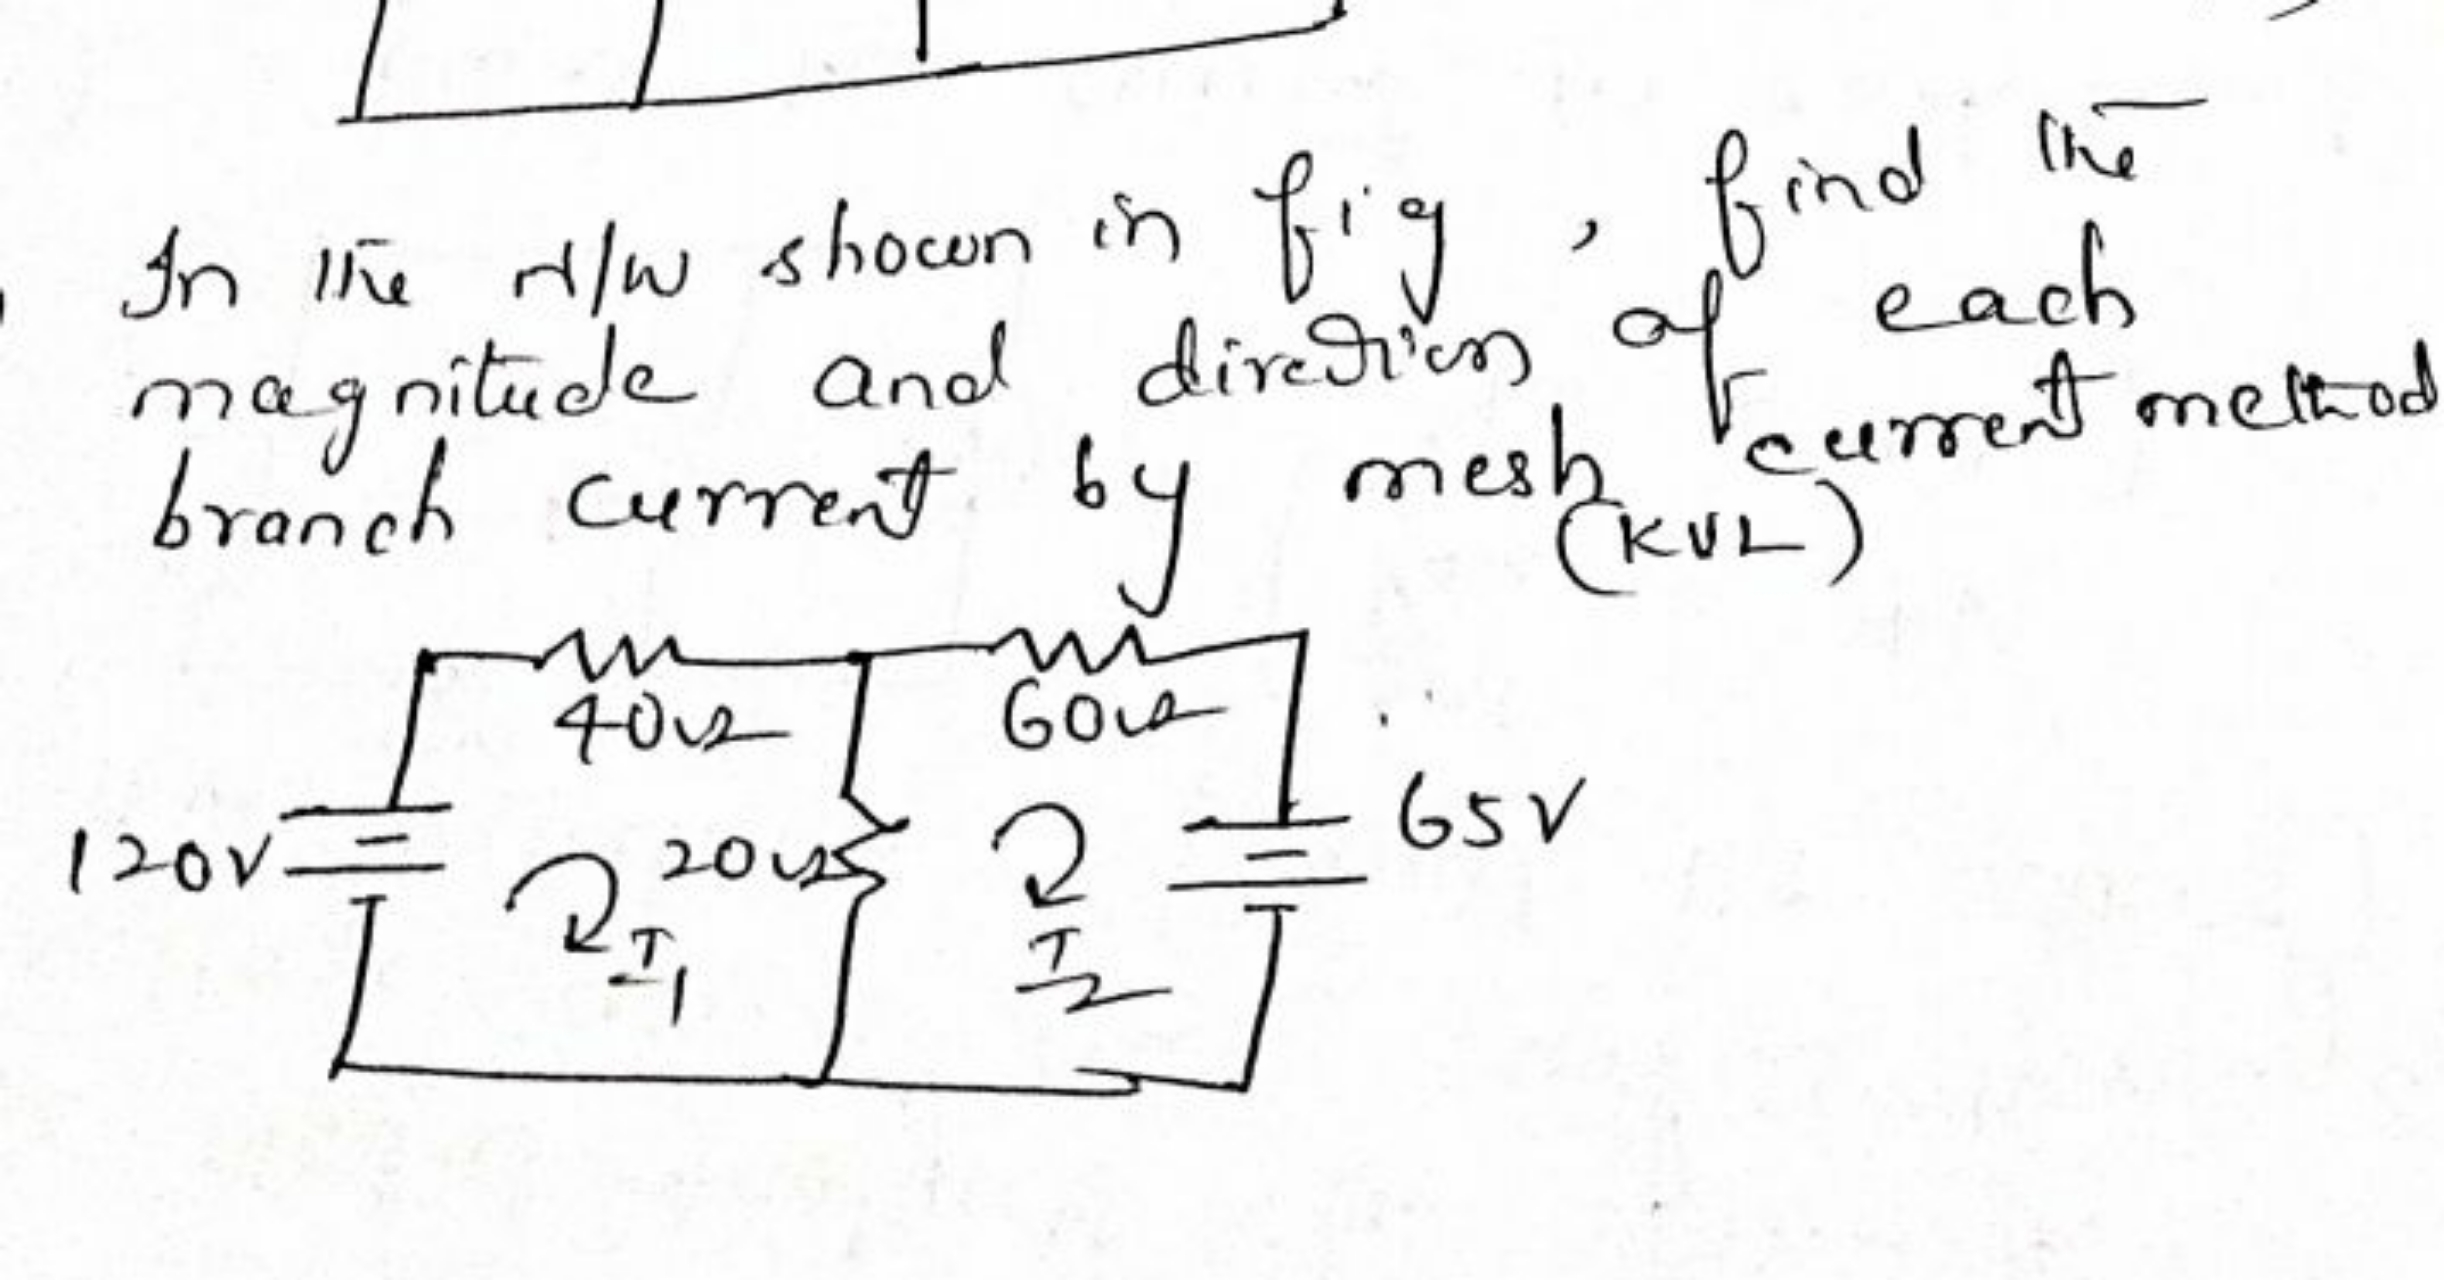 In the N/W shown in fig, find the
magnitude and direction of each
branch current by mesh current method
(KVL)
40Ω
60Ω
120V
20Ω
65V
I1
I2